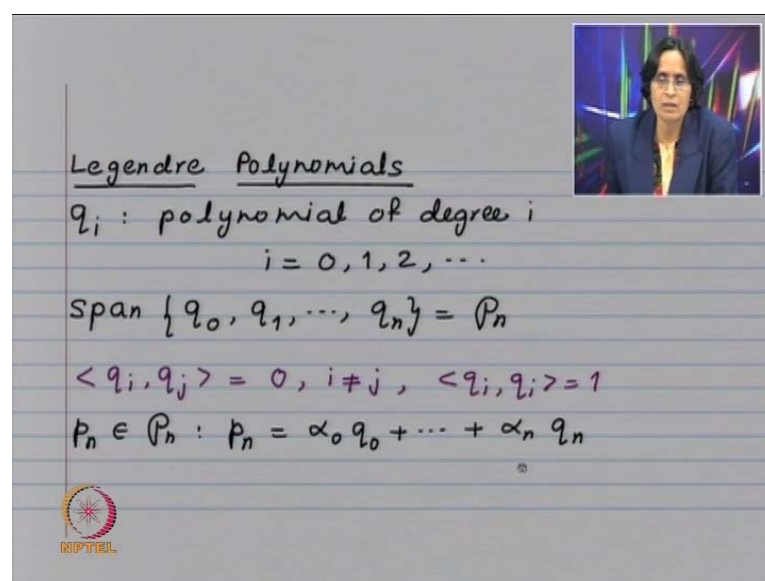 Legendre Polynomials
qᵢ : polynomial of degree i
i = 0, 1, 2, ...
Span {q₀, q₁, ..., qₙ} = 𝒫ₙ
<qᵢ, qⱼ> = 0, i ≠ j, <qᵢ, qᵢ> = 1
pₙ ∈ 𝒫ₙ : pₙ = α₀ q₀ + ... + αₙ qₙ
NPTEL